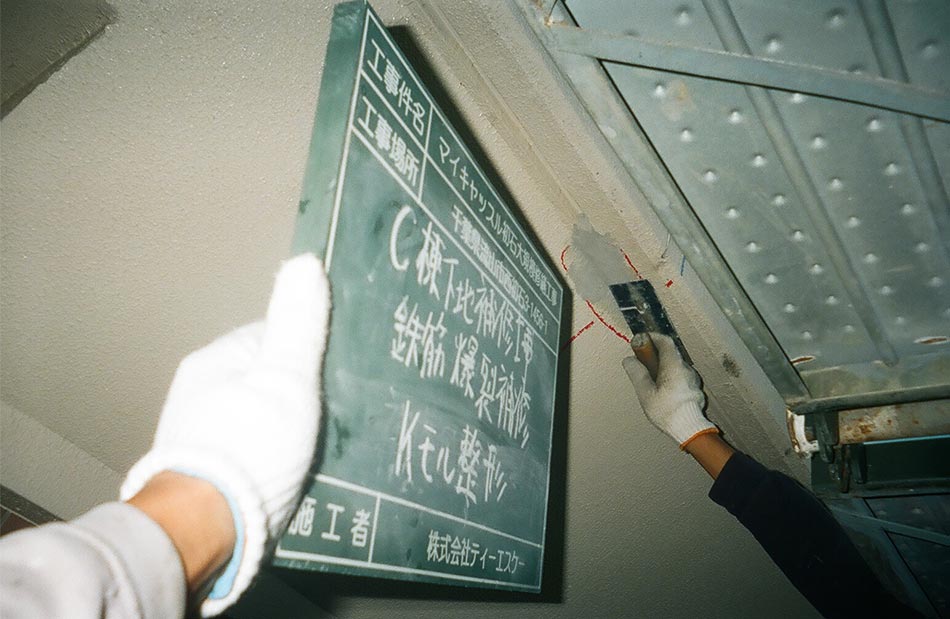 工事件名 マイキャッスル初石大規模修繕工事
工事場所 千葉県流山市西初石3-1456-1
C棟下地補修工事
鉄筋爆裂補修
Kモル整形
施工者 株式会社ティーエスケー